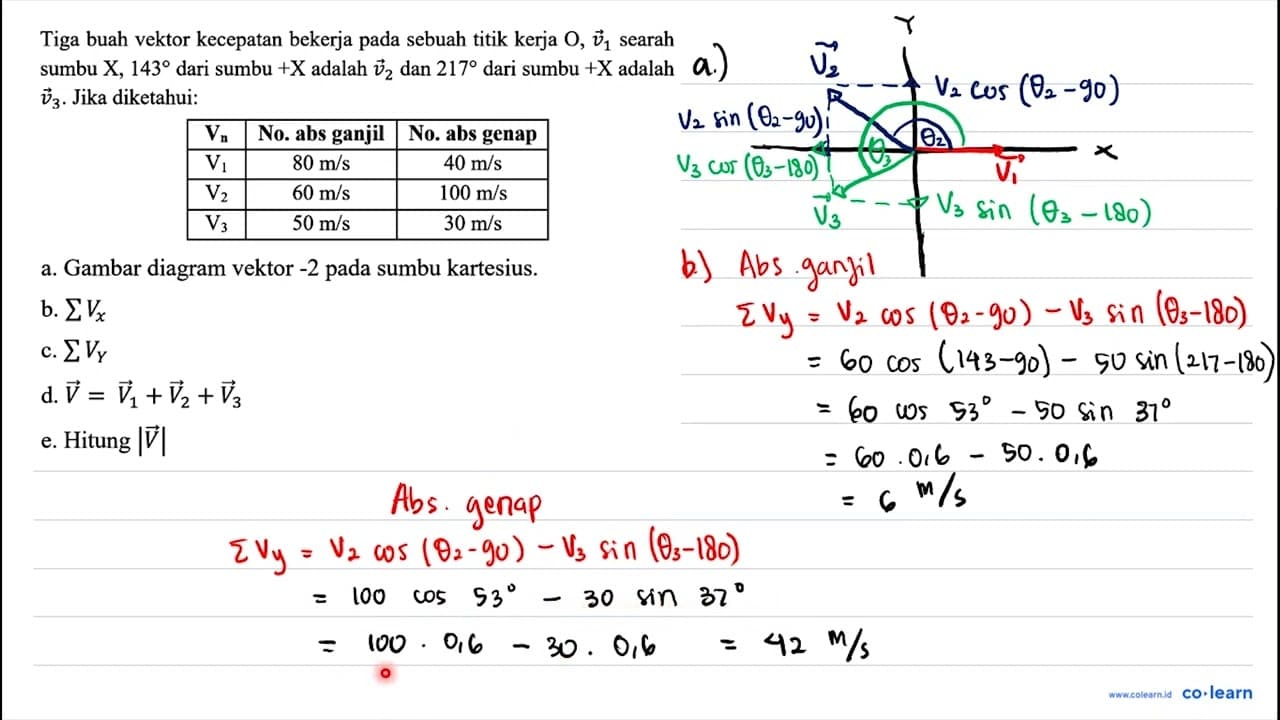 Tiga buah vektor kecepatan bekerja pada sebuah titik kerja O, v⃗₁ searah
sumbu X, 143° dari sumbu +X adalah v⃗₂ dan 217° dari sumbu +X adalah
v⃗₃. Jika diketahui:
Vₙ No. abs ganjil No. abs genap
V₁ 80 m/s 40 m/s
V₂ 60 m/s 100 m/s
V₃ 50 m/s 30 m/s
a. Gambar diagram vektor -2 pada sumbu kartesius.
b. ∑Vₓ
c. ∑V_Y
d. V⃗ = V⃗₁ + V⃗₂ + V⃗₃
e. Hitung |V⃗|
a.)
Y
V⃗₂
V₂ cos (θ₂-90)
V₂ sin (θ₂-90)
θ₂
X
V₃ cos (θ₃-180)
θ₃
V⃗₁
V⃗₃
V₃ sin (θ₃-180)
b) Abs. ganjil
ΣVy = V₂ cos (θ₂-90) - V₃ sin (θ₃-180)
= 60 cos (143-90) - 50 sin (217-180)
= 60 cos 53° - 50 sin 37°
= 60 . 0,6 - 50 . 0,6
= 6 m/s
Abs. genap
ΣVy = V₂ cos (θ₂-90) - V₃ sin (θ₃-180)
= 100 cos 53° - 30 sin 37°
= 100 . 0,6 - 30 . 0,6 = 42 m/s
www.colearn.id co·learn